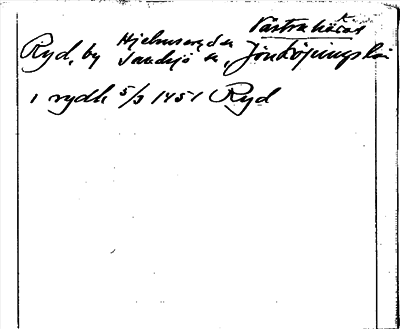 Västra härad
Ryd, by Hjelmseryd sn
Sandsjö sn, Jönköpings län
i rydh 5/3 1451 Ryd